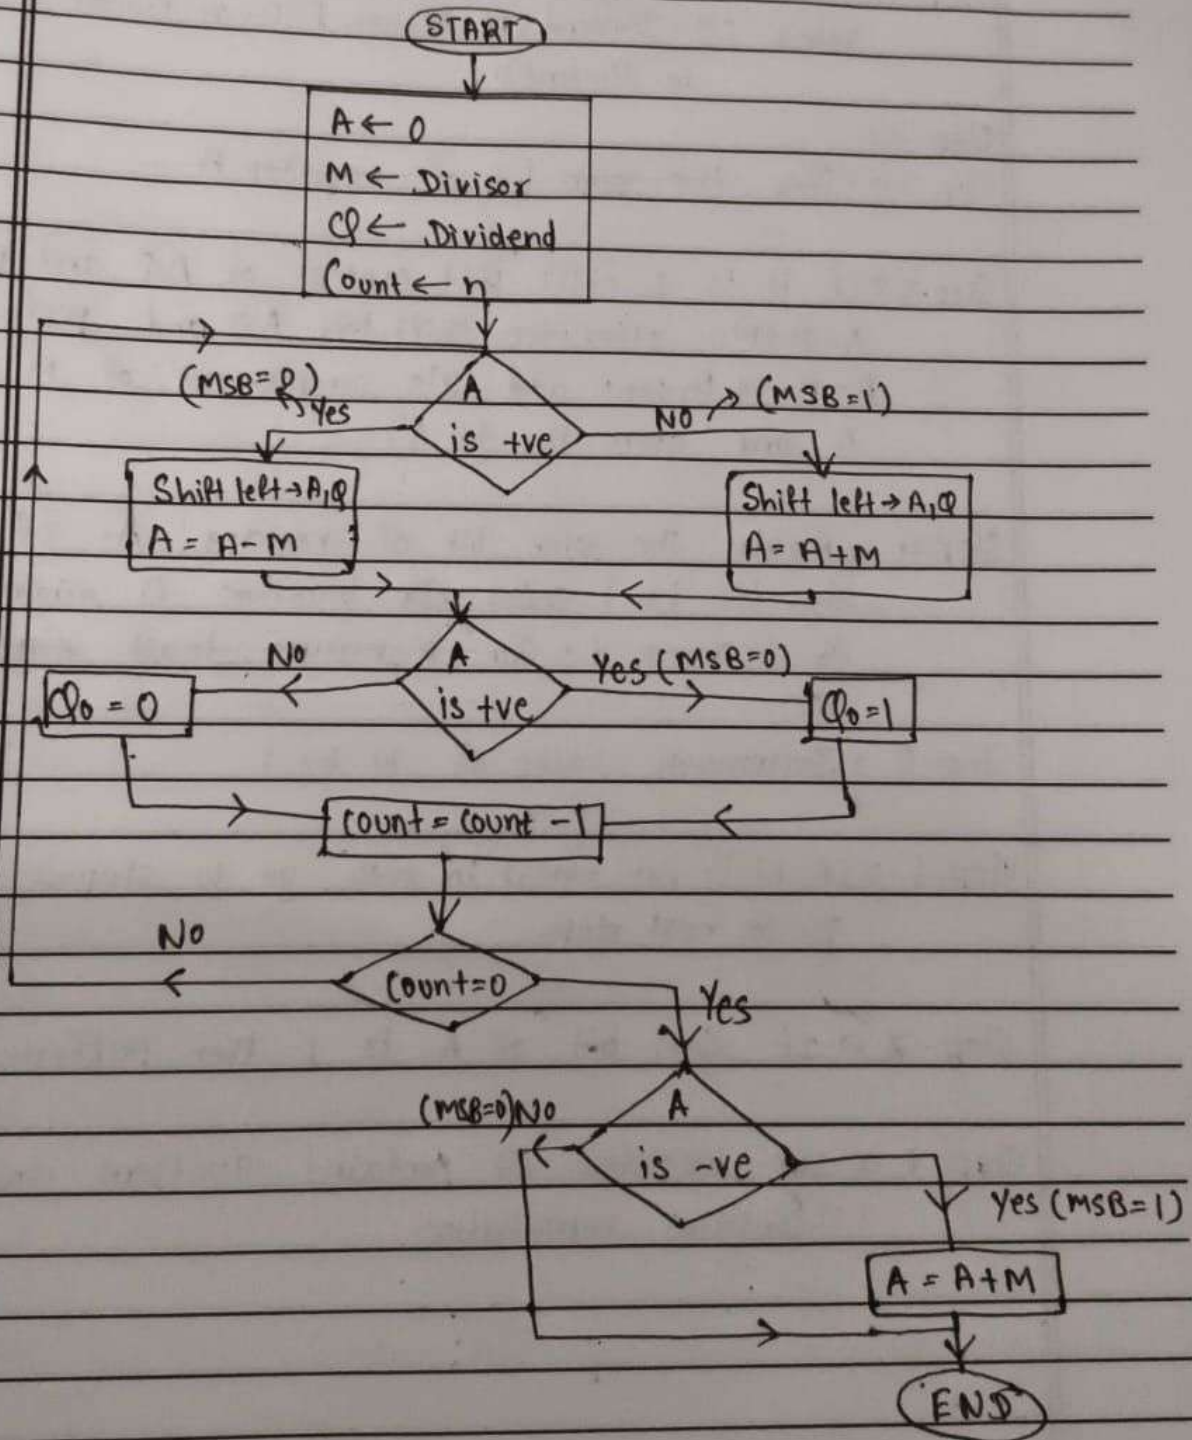 START
A ← 0
M ← Divisor
Q ← Dividend
Count ← n
A
is +ve
(MSB=0)
Yes
NO → (MSB=1)
Shift left → A,Q
A = A-M
Shift left → A,Q
A = A+M
A
is +ve
No
Yes (MSB=0)
Q0 = 0
Q0=1
Count = Count -1
Count=0
No
Yes
A
is -ve
(MSB=0) No
Yes (MSB=1)
A = A+M
END